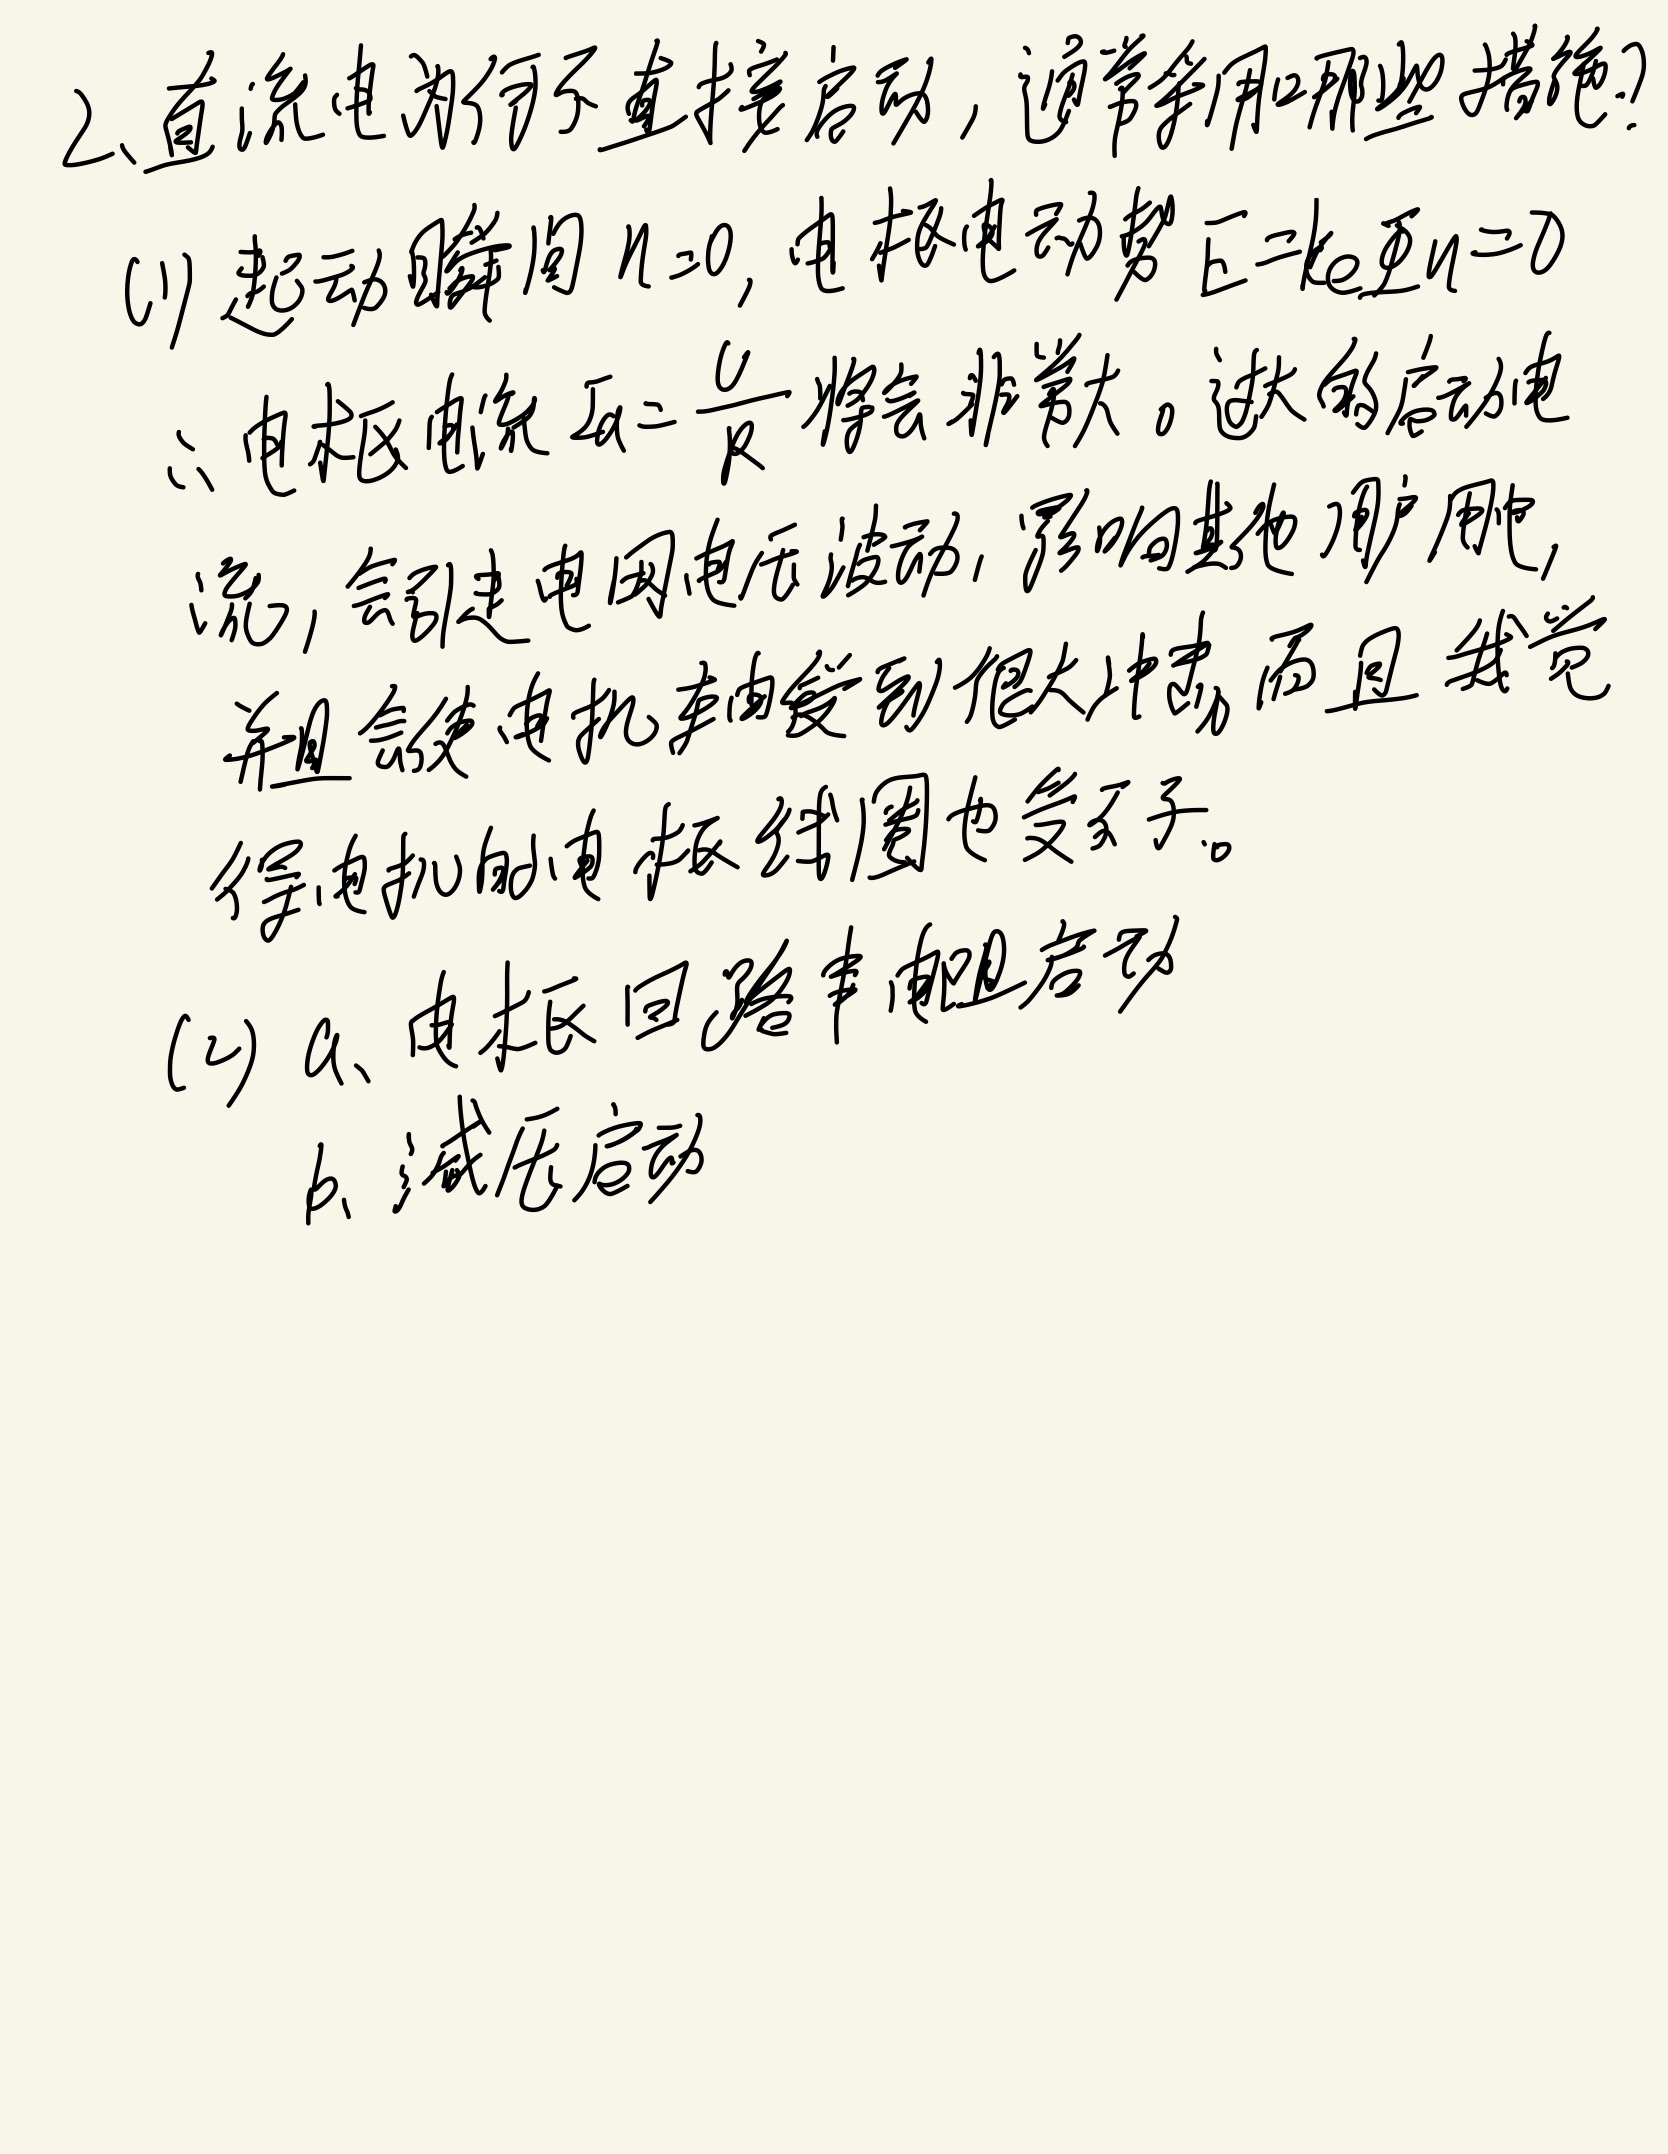 2、直流电为何不直接启动，通常采用哪些措施？
(1) 起动瞬间 n=0，电枢电动势 E=keΦn=0
∴ 电枢电流 Ia=U/R 将会非常大。过大的启动电
流，会引起电网电压波动，影响其他用户用电，
并且会使电机轴受到很大冲击，而且我觉
得电机的电枢线圈也受不了。
(2) a、电枢回路串电阻启动
b、减压启动